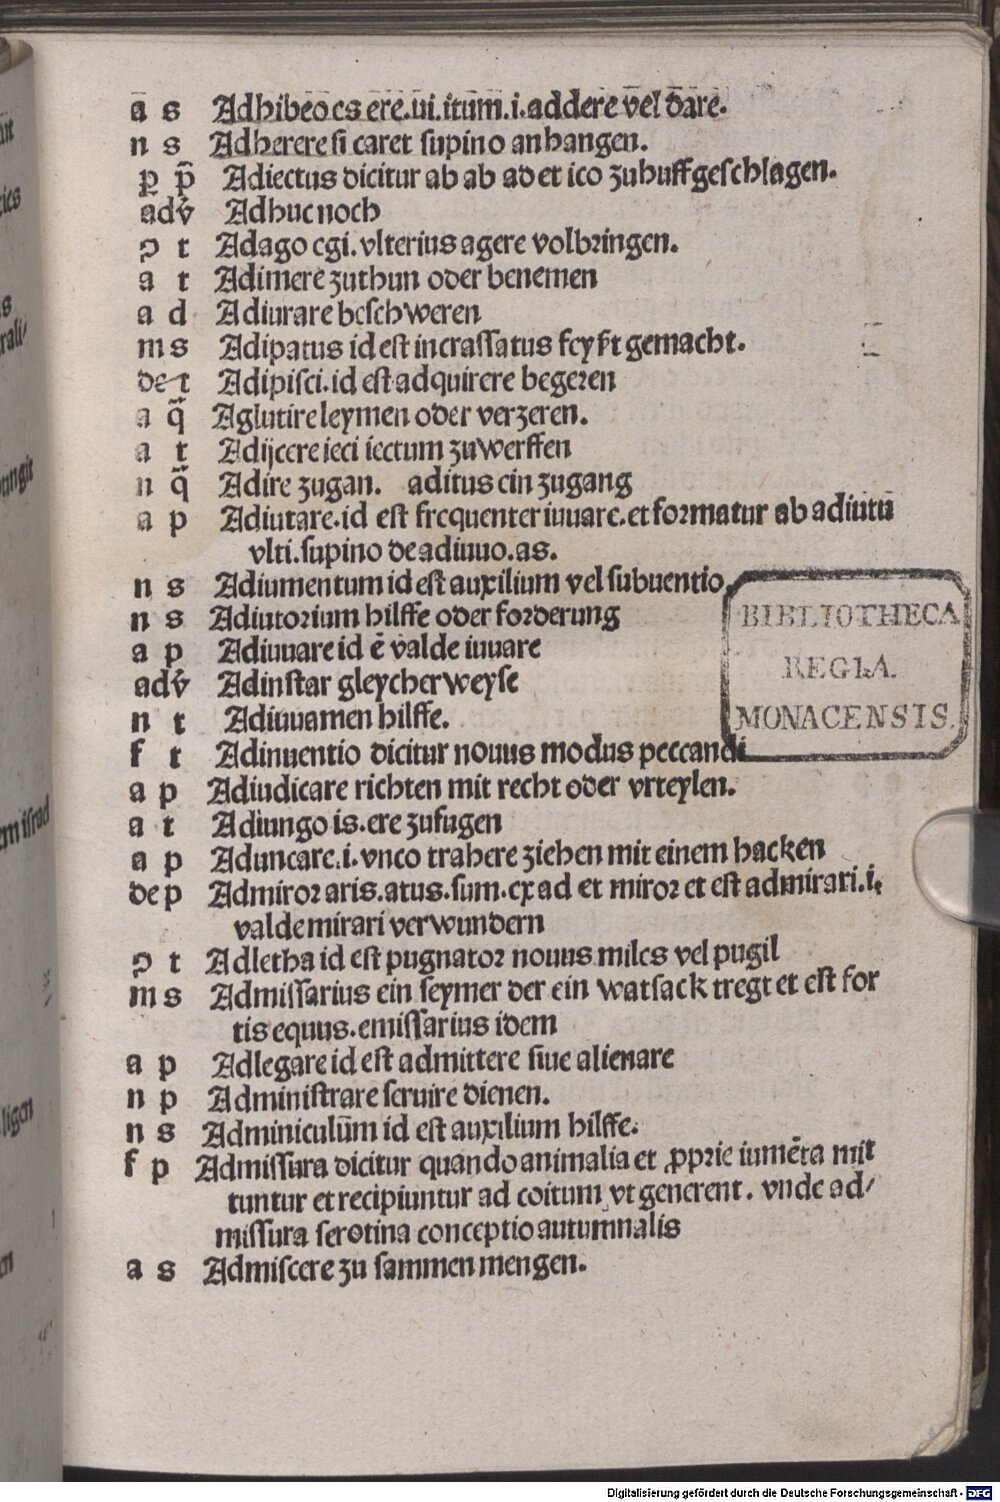 a s Adhibeo es ere.ui.itum.i.addere vel dare.
n s Adherere si caret supino anhangen.
p̲ p̄ Adiectus dicitur ab ab ad et ico zuhuffgeschlagen.
adv̄ Adhuc noch
ꝯ t Adago egi.vlterius agere volbringen.
a t Adimere zuthun oder benemen
a d Adiurare beschweren
m s Adipatus id est incrassatus feyst gemacht.
de t Adipisci.id est adquirere begeren
a q̄ Aglutire leymen oder verzeren.
a t Adijcere ieci iectum zuwerffen
n q̄ Adire zugan. aditus ein zugang
a p Adiutare.id est frequenter iuuare.et formatur ab adiutū
vlti.supino de adiuuo.as.
n s Adiumentum id est auxilium vel subuentio
n s Adiutorium hilffe oder forderung
a p Adiuuare id ē valde iuuare
adv̄ Adinstar gleycher weyse
n t Adiuuamen hilffe.
f t Adinuentio dicitur nouus modus peccandi
a p Adiudicare richten mit recht oder vrteylen.
a t Adiungo is.ere zufugen
a p Aduncare.i.vnco trahere ziehen mit einem hacken
de p Admiror aris.atus.sum.ex ad et miror et est admirari.i.
valde mirari verwundern
ꝯ t Adletha id est pugnator nouus miles vel pugil
m s Admissarius ein seymer der ein watsack tregt et est for
tis equus.emissarius idem
a p Adlegare id est admittere siue alienare
n p Administrare seruire dienen.
n s Adminiculūm id est auxilium hilffe.
f p Admissura dicitur quando animalia et ꝓprie iumēta mit
tuntur et recipiuntur ad coitum vt generent. vnde ad/
missura serotina conceptio autumnalis
a s Admiscere zu sammen mengen.
BIBLIOTHECA
REGIA.
MONACENSIS.
Digitalisierung gefördert durch die Deutsche Forschungsgemeinschaft - DFG